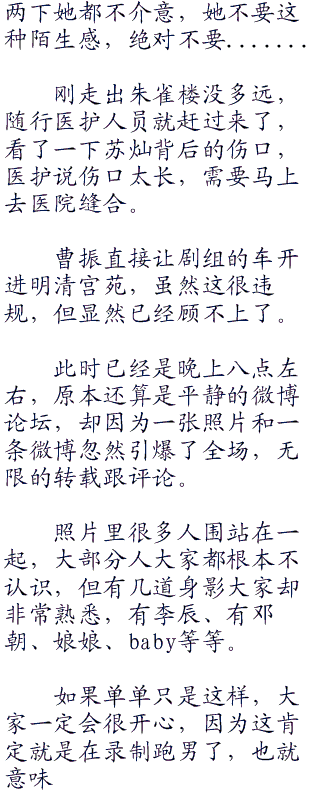 两下她都不介意，她不要这
种陌生感，绝对不要.......
刚走出朱雀楼没多远，
随行医护人员就赶过来了，
看了一下苏灿背后的伤口，
医护说伤口太长，需要马上
去医院缝合。
曹振直接让剧组的车开
进明清宫苑，虽然这很违
规，但显然已经顾不上了。
此时已经是晚上八点左
右，原本还算是平静的微博
论坛，却因为一张照片和一
条微博忽然引爆了全场，无
限的转载跟评论。
照片里很多人围站在一
起，大部分人大家都根本不
认识，但有几道身影大家却
非常熟悉，有李辰、有邓
朝、娘娘、baby等等。
如果单单只是这样，大
家一定会很开心，因为这肯
定就是在录制跑男了，也就
意味